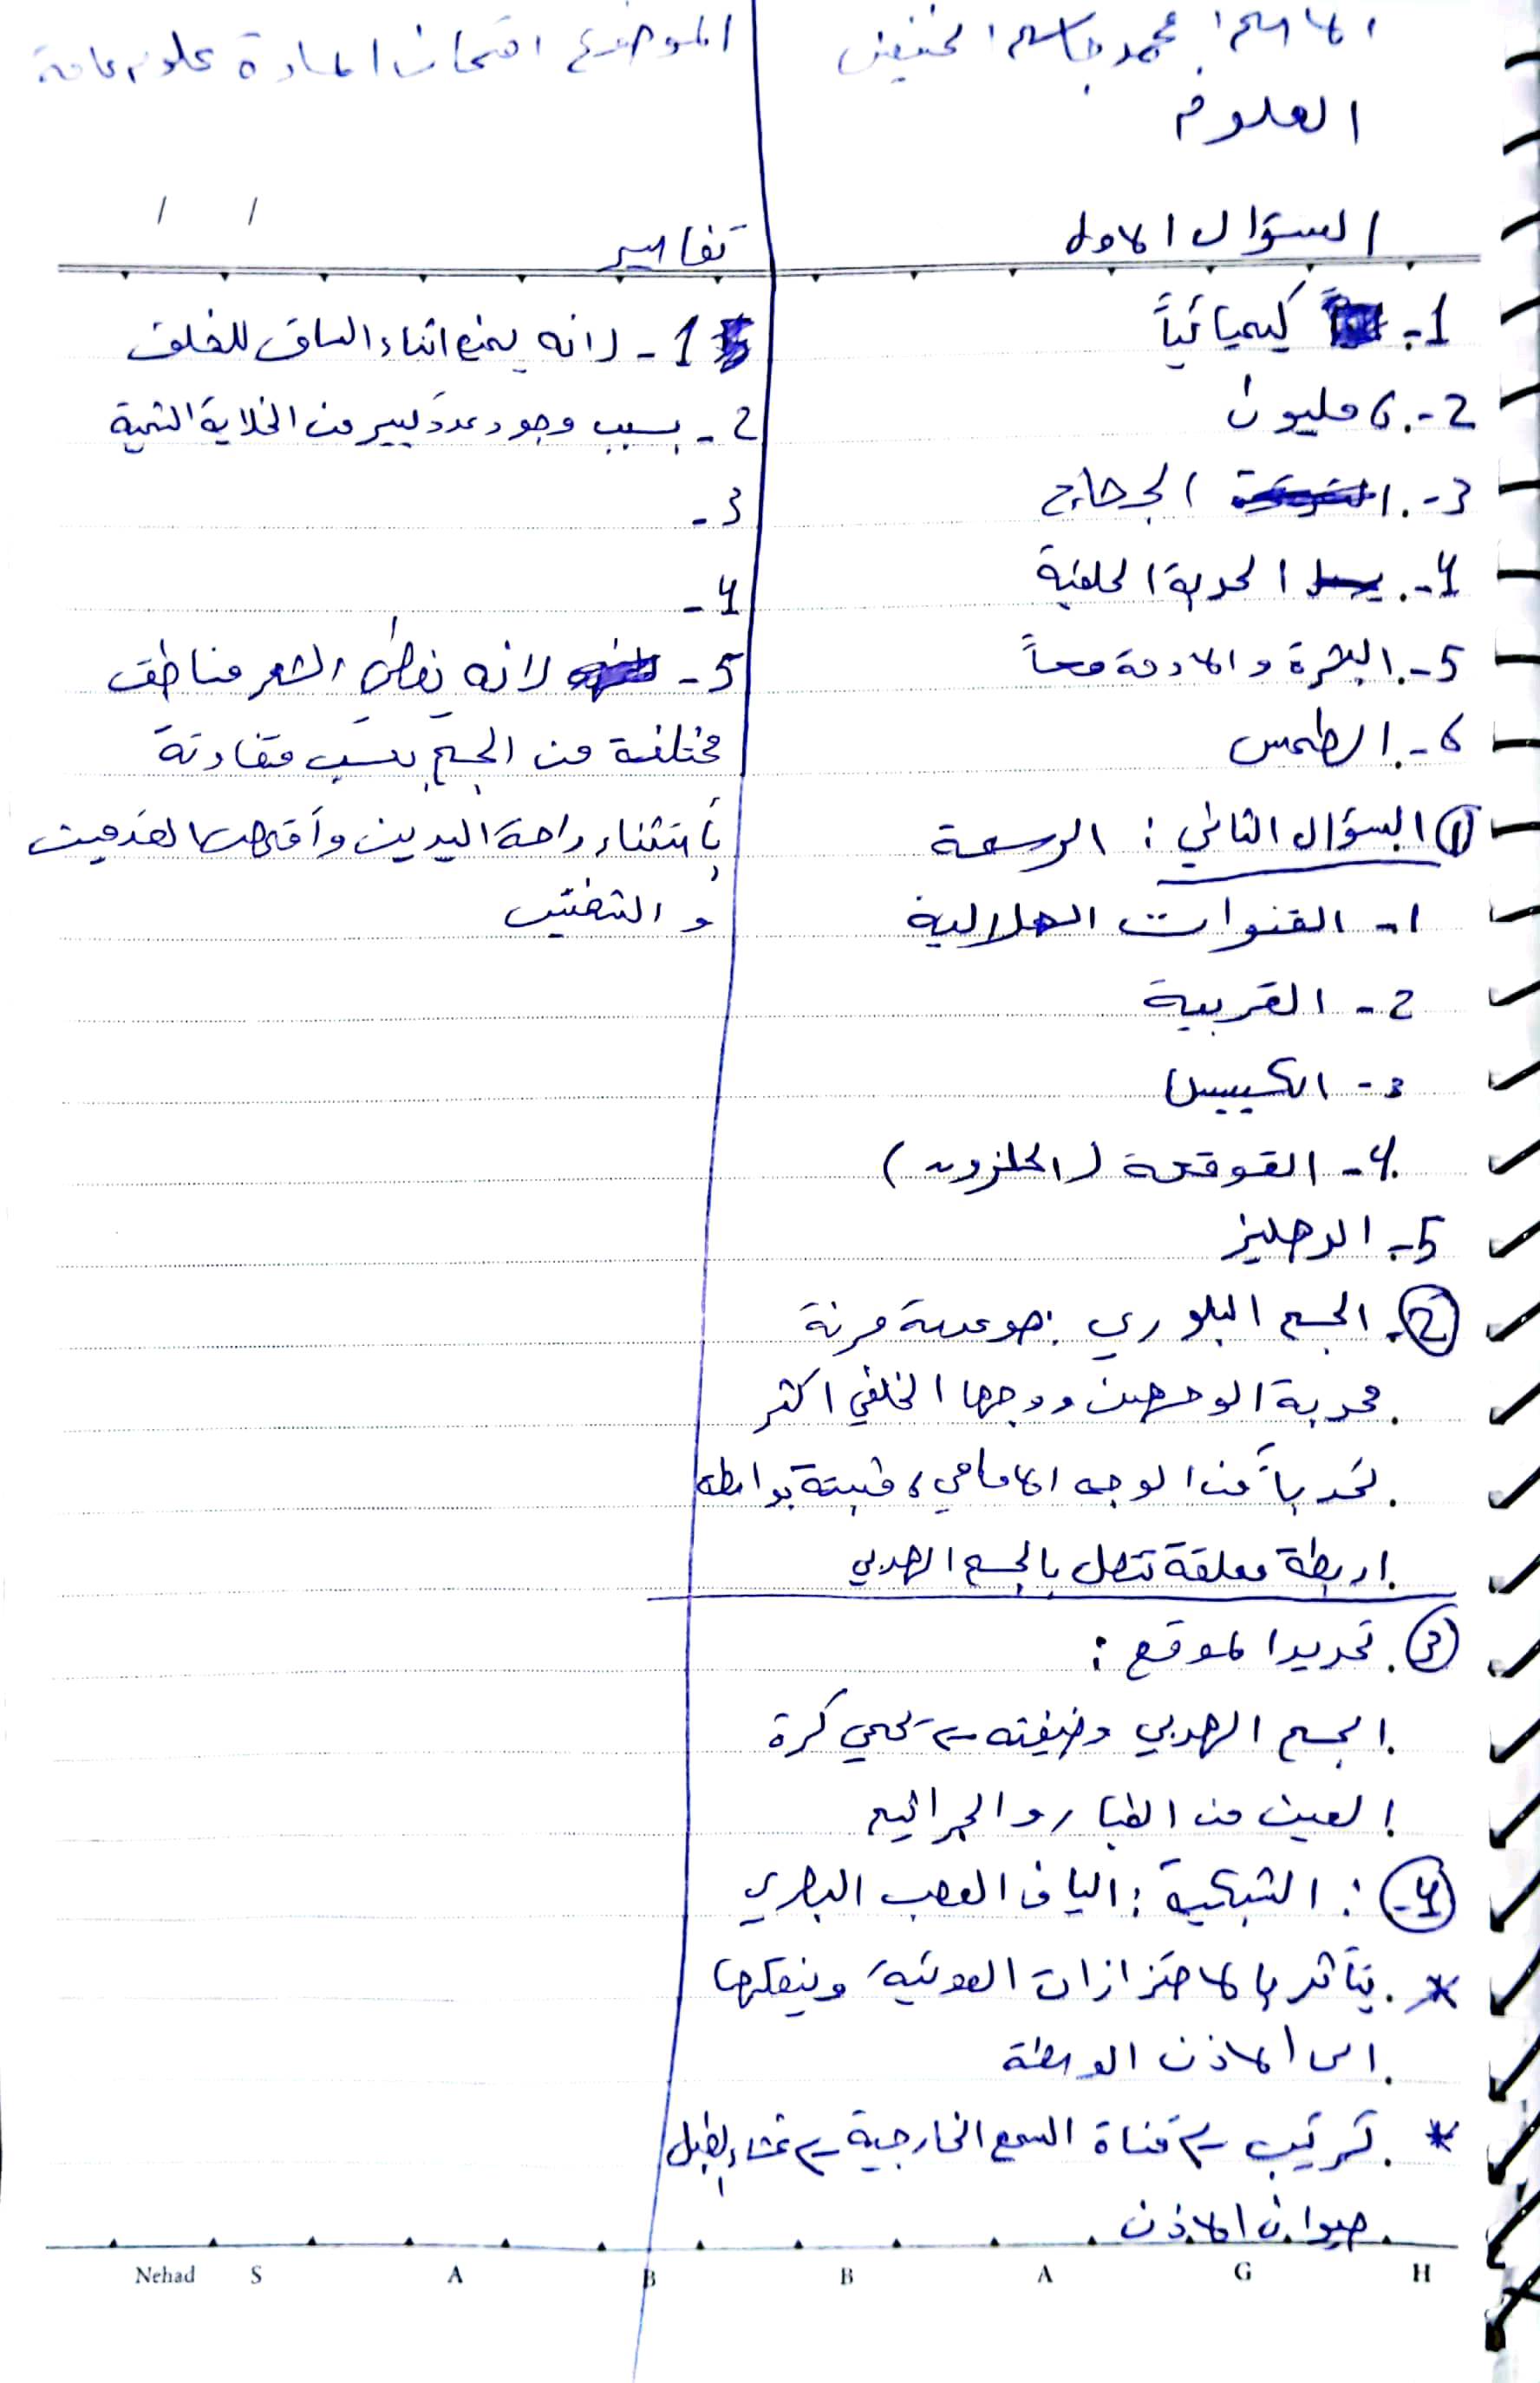 الاسم: محمد جاسم الخنيفس
الموضوع امتحان المادة علوم عامة
العلوم
السؤال الاول
1- كيميائياً
2- 6 مليون
3- الجرجاج
4- الحدبة الخلفية
5- البشرة والادمة معاً
6- الطمس
① السؤال الثاني : الرسمة
1- القنوات الهلالية
2- القريبة
3- الكييس
4- القوقعة (الحلزون)
5- الدهليز
② الجسم البلوري : هو عدسة مرنة
محدبة الوجهين ووجهها الخلفي اكثر
تحدباً من الوجه الامامي، مثبتة بواسطة
اربطة معلقة تتصل بالجسم الهدبي
③ تحديد الموقع :
الجسم الهدبي وضيفته ← تحمي كرة
العين من الغبار والجراثيم
④ : الشبكية : الياف العصب البصري
* يتأثر بالاهتزازات الصوتية وينقلها
الى الاذن الوسطة
* تركيب ← قناة السمع الخارجية ← غشاء الطبل
صيوان الاذن
تفاسير
1- لانه يمنع اثناء الساق للخلف
2- بسبب وجود عدد كبير من الخلاية الشمية
3-
4-
5- لانه يغطي الشعر مناطق
مختلفة من الجسم بنسب متفاوتة
بأستثناء راحة اليدين وأخمص القدمين
و الشفتين
Nehad S A B B A G H